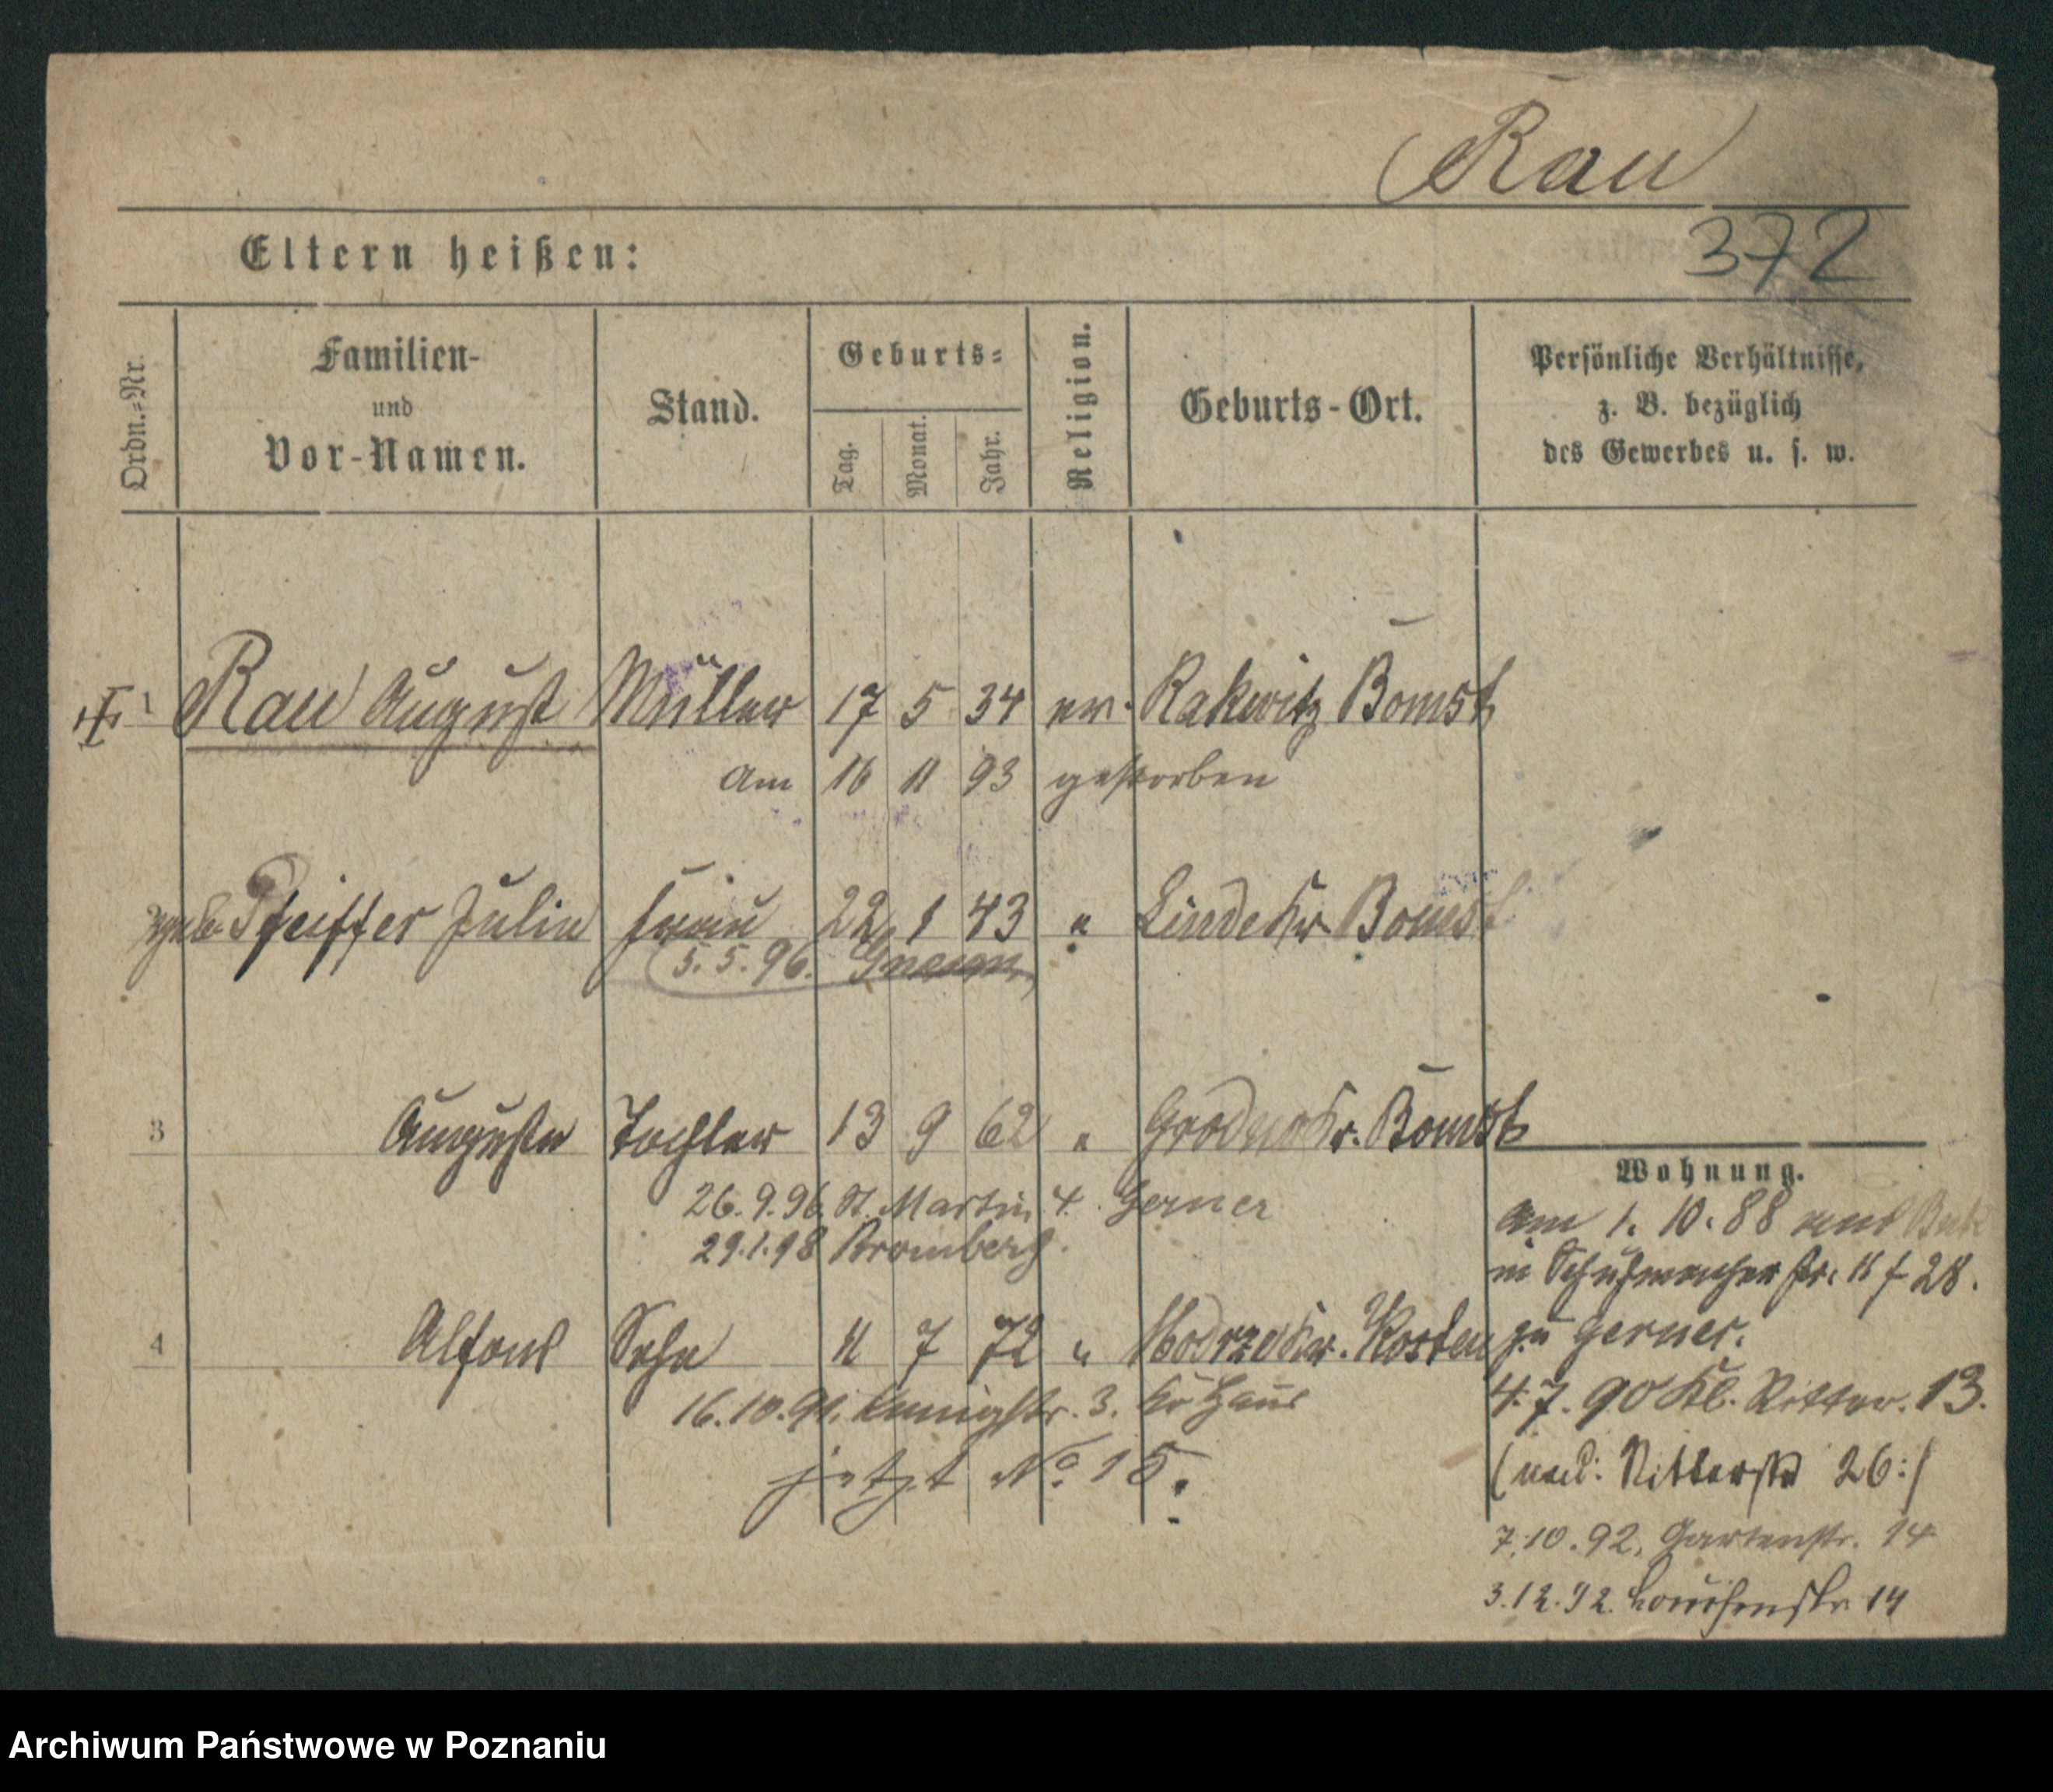 Rau
372
Eltern heißen:
Ordn.=Nr.
Familien-
und
Vor-Namen.
Stand.
Geburts=
Tag.
Monat.
Jahr.
Religion.
Geburts-Ort.
Persönliche Verhältnisse,
z. B. bezüglich
des Gewerbes u. s. w.
1 Rau August Müller 17 5 34 ev. Rakwitz Bomst
am 16 11 93 gestorben
geb. Pfeiffer Julie Frau 22 1 43 " Linde Kr. Bomst
5.5.96. Gnesen
3 Auguste Tochter 13 9 62 " Grodno Kr. Bomst
26.9.96 St. Martin 4. Gerner
29.1.98 Bromberg.
4 Alfons Sohn 11 7 72 " Modrze Kr. Kosten
16.10.91. Kanichstr. 3. Haus
jetzt No. 15.
Wohnung.
am 1. 10. 88 aus Buk
in Schuhmacher str. 11 f 28.
zu Gerner.
4.7.90 Kl. Ritter. 13.
(und: Ritterstr 26:)
7.10.92. Gartenstr. 14
3.12.92. Louisenstr 14
Archiwum Państwowe w Poznaniu